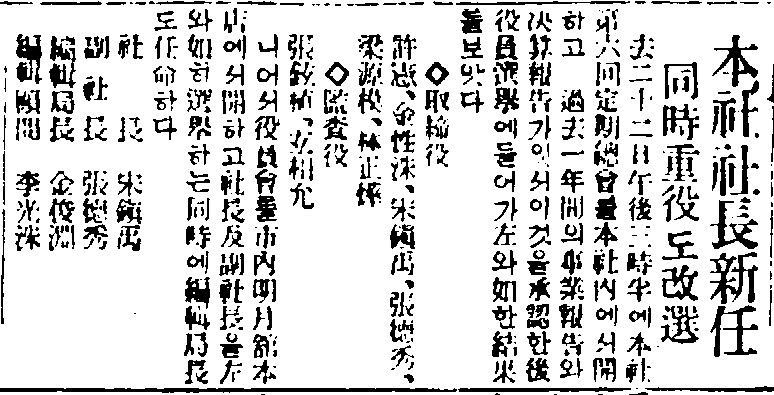 本社社長新任
同時重役도改選
去二十二日午後三時半에本社
第六回定期總會를本社內에서開
하고 過去一年間의事業報告와
決算報告가잇서이것을承認한後
役員選擧에들어가左와如한結果
를보앗다
◇取締役
許憲、金性洙、宋鎭禹、張德秀、
梁源模、林正燁
◇監査役
張鉉植、玄相允
니어서役員會를市內明月舘本
店에서開하고社長及副社長을左
와如히選擧하는同時에編輯局長
도任命하다
社長 宋鎭禹
副社長 張德秀
編輯局長 金俊淵
編輯顧問 李光洙